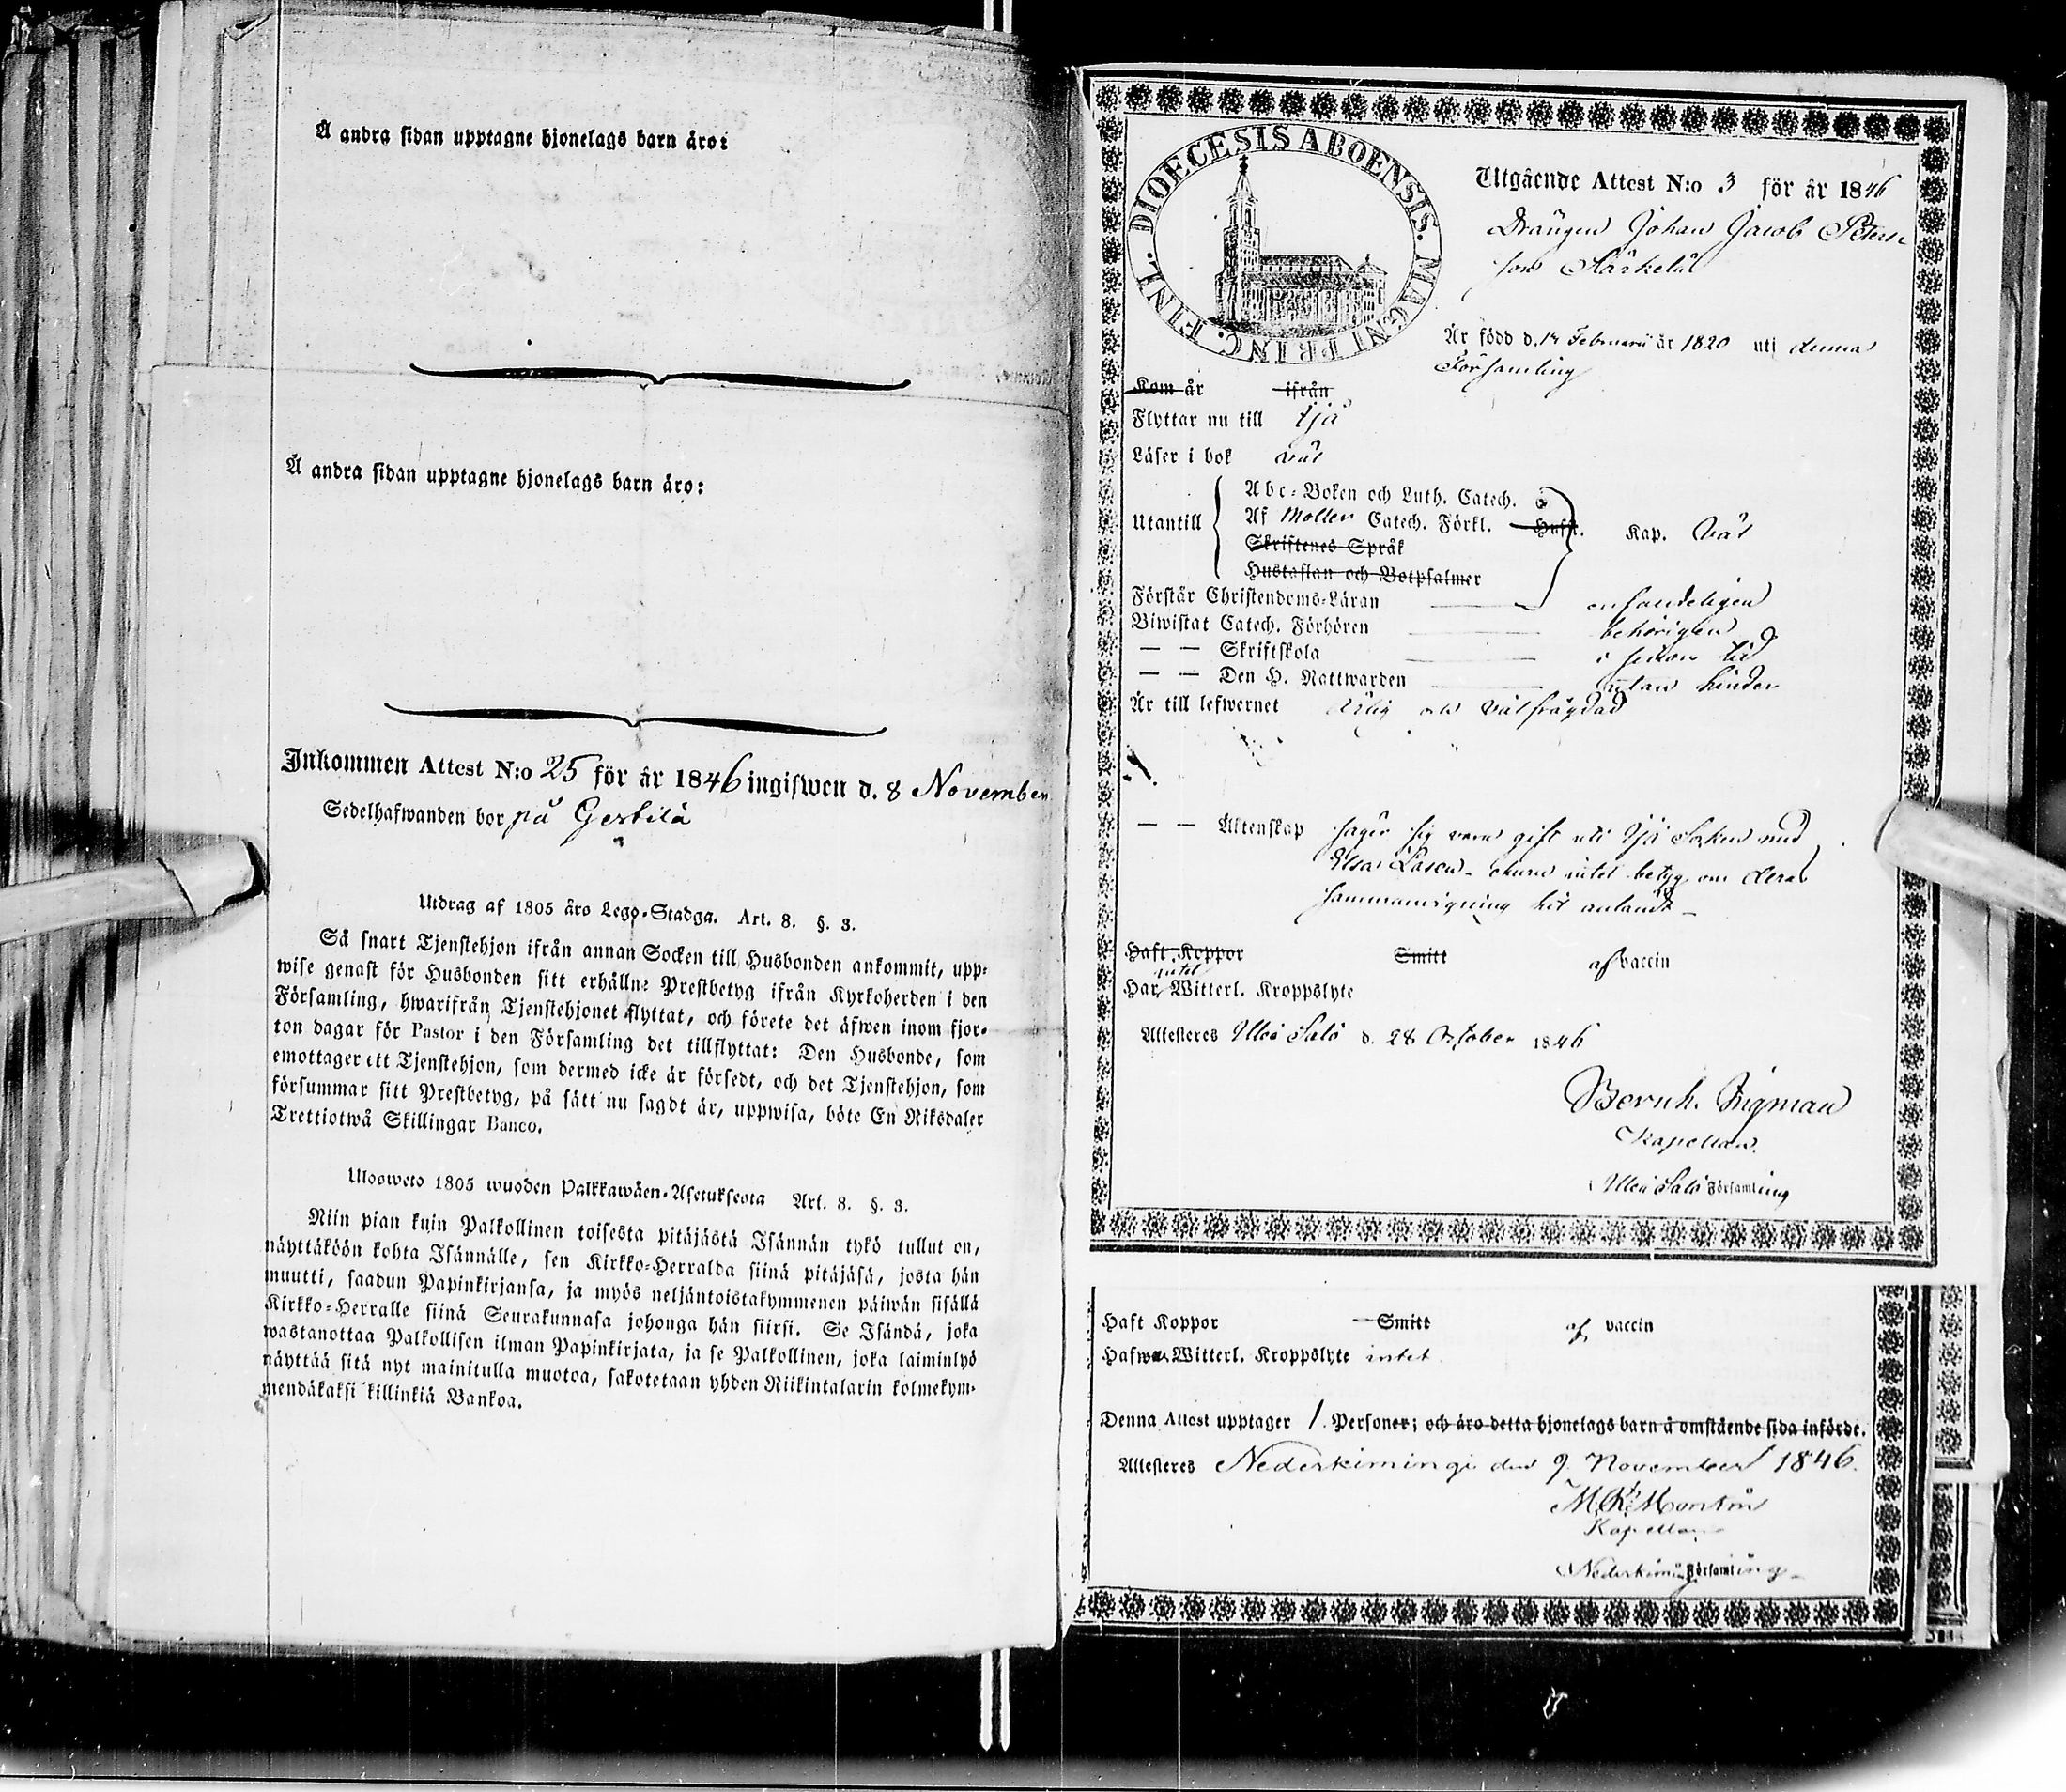 Å andra sidan upptagne hjonelags barn äro:
Å andra sidan upptagne hjonelags barn äro:
Inkommen Attest N:o 25 för år 1846 ingifwen d. 8 November
Sedelhafwanden bor på Gertilä
Utdrag af 1805 års Lego-Stadga. Art. 8. §. 3.
Så snart Tjenstehjon ifrån annan Socken till Husbonden ankommit, upp-
wise genast för Husbonden sitt erhållne Prestbetyg ifrån Kyrkoherden i den
Församling, hwarifrån Tjenstehjonet flyttat, och förete det äfwen inom fjor-
ton dagar för Pastor i den Församling det tillflyttat: Den Husbonde, som
emottager ett Tjenstehjon, som dermed icke är försedt, och det Tjenstehjon, som
försummar sitt Prestbetyg, på sätt nu sagdt är, uppwisa, böte En Riksdaler
Trettiotwå Skillingar Banco.
Ulosweto 1805 wuoden Palkkawäen-Asetuksesta Art. 8. §. 3.
Niin pian kuin Palkollinen toisesta pitäjästä Isännän tykö tullut on,
näyttäköön kohta Isännälle, sen Kirkko-Herralda siinä pitäjäsä, josta hän
muutti, saadun Papinkirjansa, ja myös neljäntoistakymmenen päiwän sisällä
Kirkko-Herralle siinä Seurakunnasa johonga hän siirsi. Se Isändä, joka
wastanottaa Palkollisen ilman Papinkirjata, ja se Palkollinen, joka laiminlyö
näyttää sitä nyt mainitulla muotoa, sakotetaan yhden Riikintalarin kolmekym-
mendäkaksi killinkiä Bankoa.
DIOECESIS ABOENSIS. MAGNI PRINC. FINL.
Utgående Attest N:o 3 för år 1846
Drängen Johan Jacob Peters
son Särkelä
Är född d. Februarii år 1820 uti denna
Församling
Kom år ifrån
Flyttar nu till Ijå
Läser i bok väl
Abc-Boken och Luth. Catech.
Utantill Af Möller Catech. Förkl. Hust. Kap. väl
Skriftenes Språk
Hustaflan och Botpsalmer
Förstår Christendoms-Läran enfaldeligen
Biwistat Catech. Förhören behörigen
— — Skriftskola i sinom tid
— — Den H. Nattwarden utan hinder
Är till lefwernet ärlig och välfrägdad
— — Äktenskap säger sig vara gift uti Ijå Socken med
Elsa Lasen
sammanvigning hit anländt —
Haft Koppor Smitt af vaccin
Har intet Witterl. Kroppslyte
Attesteres Uleå Salo d. 28 October 1846
Bernh. Zigman
Kapellan.
Uleå Salo Församling
Haft Koppor Smitt af vaccin
Hafwa Witterl. Kroppslyte intet
Denna Attest upptager 1. Personer; och äro detta hjonelags barn å omstående sida införde.
Attesteres Nederkimingi den 9 November 1846.
M. R. Montin
Kapellan
Nederkimingi Församling